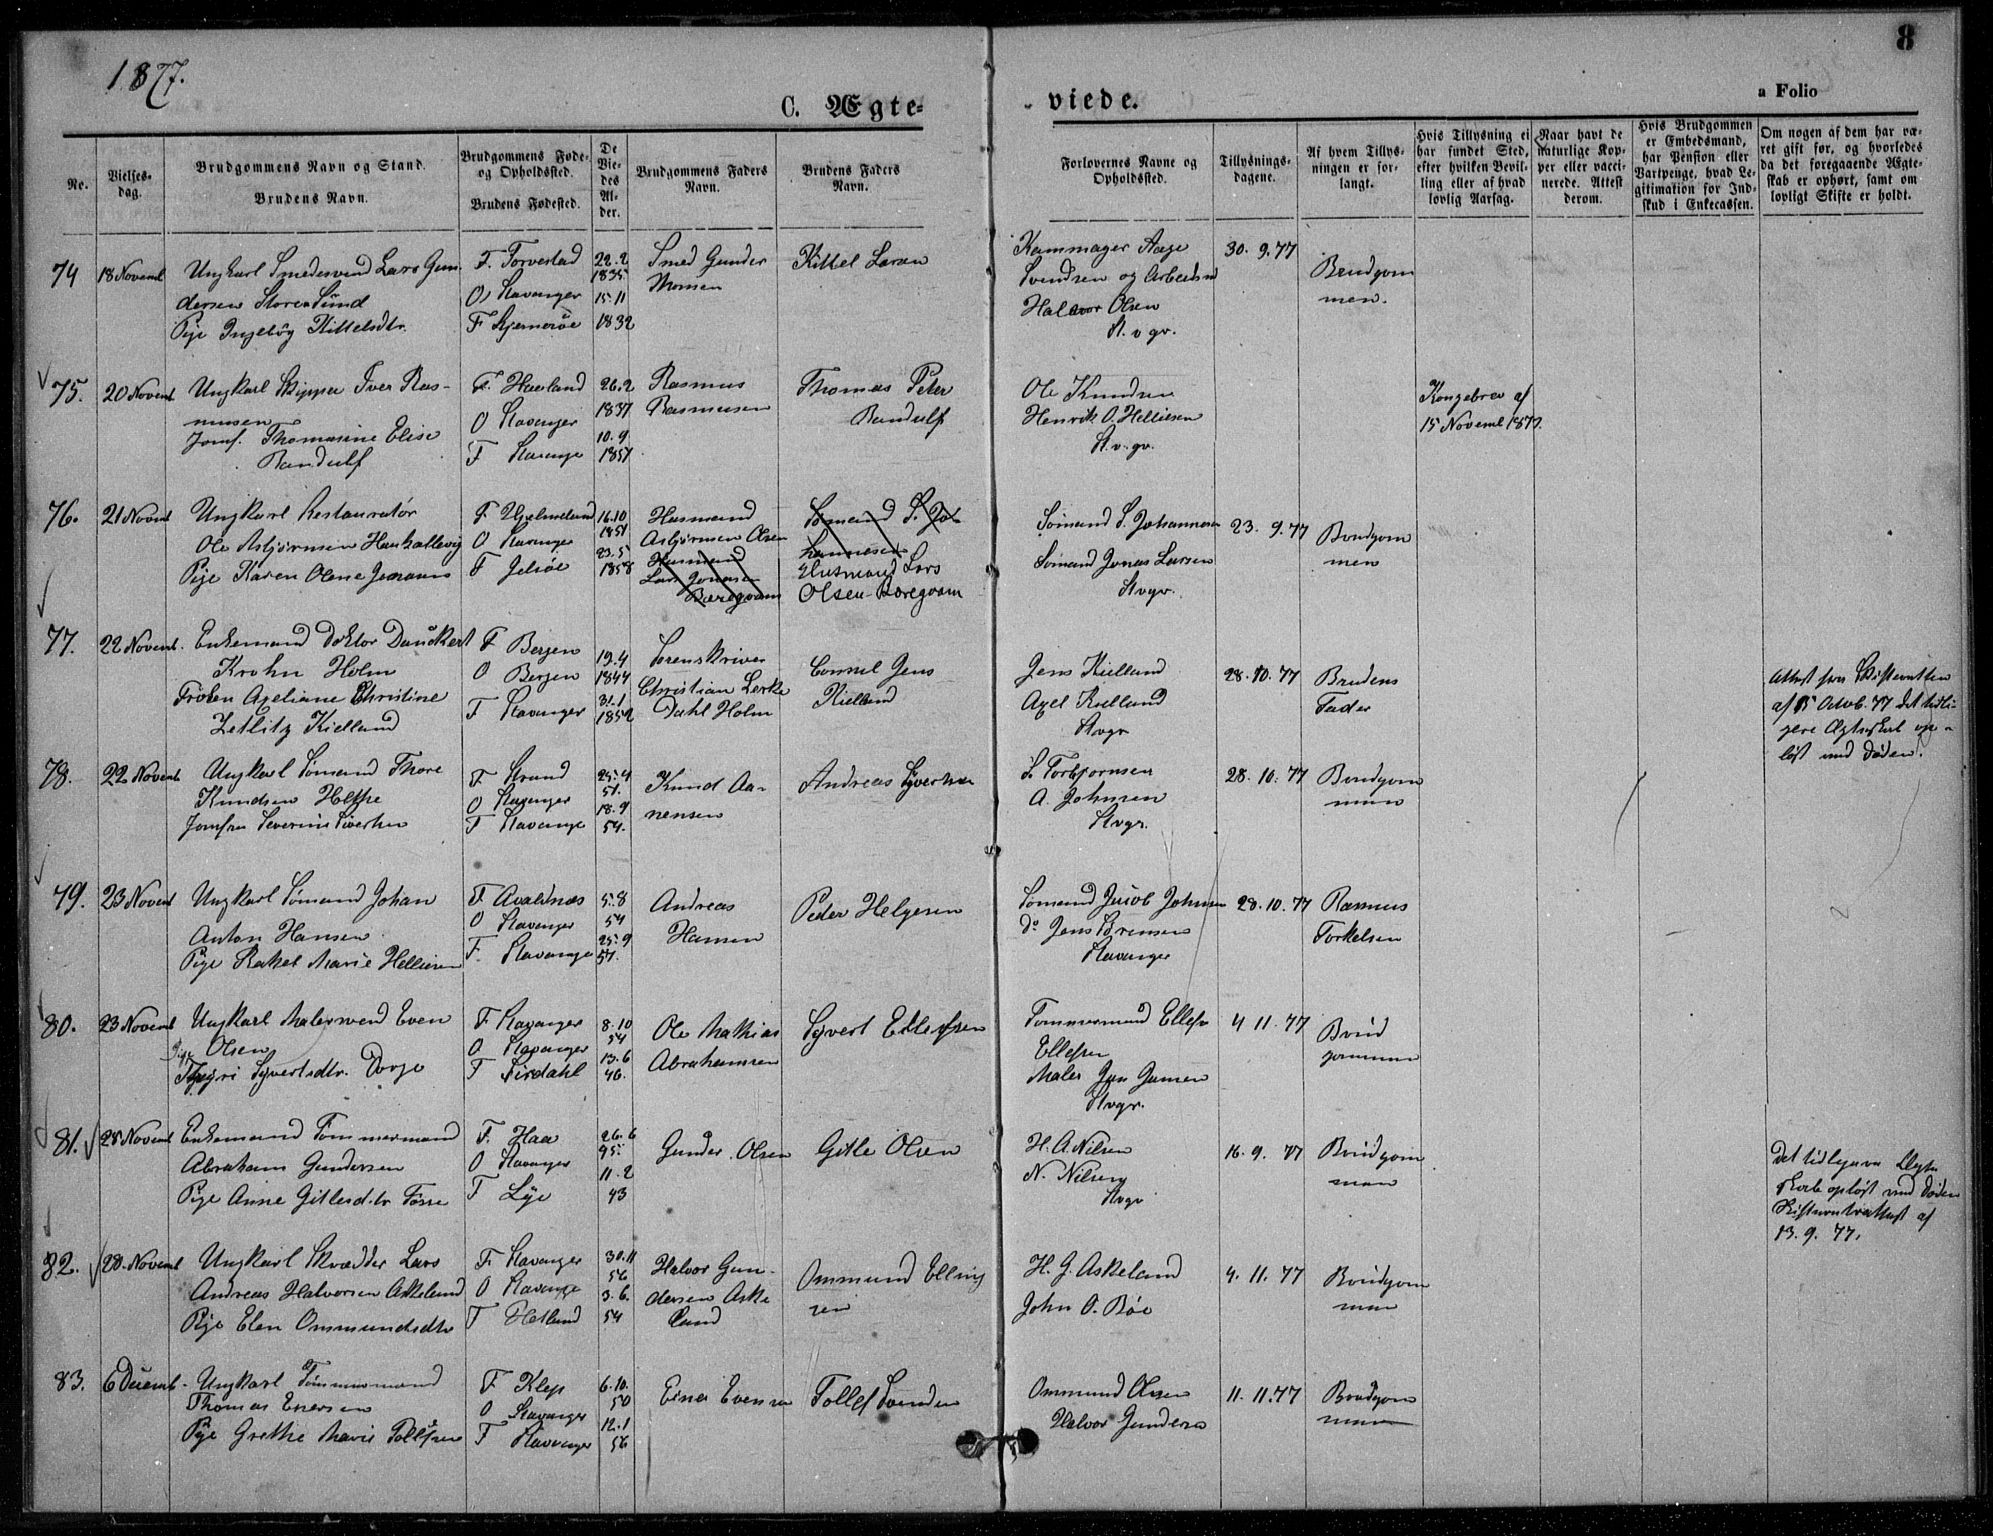 1877.
8
C. Ægte-
viede.
a Folio
No.
Vielses-
dag.
Brudgommens Navn og Stand.
Brudens Navn.
Brudgommens Føde-
og Opholdssted.
Brudens Fødested.
De
Vie-
des
Al-
der.
Brudgommens Faders
Navn.
Brudens Faders
Navn.
Forlovernes Navne og
Opholdssted.
Tillysnings-
dagene.
Af hvem Tillys-
ningen er for-
langt.
Hvis Tillysning ei
har fundet Sted,
efter hvilken Bevil-
ling eller af hvad
lovlig Aarsag.
Naar havt de
naturlige Kop-
per eller vacci-
nerede. Attest
derom.
Hvis Brudgommen
er Embedsmand,
har Pension eller
Vartpenge, hvad Le-
gitimation for Ind-
skud i Enkecassen.
Om nogen af dem har væ-
ret gift før, og hvorledes
da det foregaaende Ægte-
skab er ophørt, samt om
lovligt Skifte er holdt.
74
18 Novemb
Ungkarl Smedesvend Lars Gun
dersen Store Sund
Pige Ingebøg Kittelsdtr.
F. Torvestad
O. Stavanger
F Hjernerøe
22.2
1835
15.11
1832
Smed Gunder
Thomsen
Kittel Larsen
Kammager Aage
Svendsen og Arbeidsmd
Halvor Olsen
St.v gr.
30. 9. 77
Brudgom
men.
75.
20 Novemb
Ungkarl Skipper Iver Ras-
mussen
Jomf. Thomasine Elise
Bandulf
F. Haaland
O Stavanger
F Stavanger
26.2
1837
10.9
1857
Rasmus
Rasmussen
Thomas Peter
Bandulf
Ole Knudsen
Henrik O. Helliesen
St.v.gr.
Kongebrev af
15 Novemb 1877.
76.
21 Novmb
Ungkarl Restauratør
Ole Asbjørnsen Haukallevig
Pige Karen Olene
F Hjelmeland
O Stavanger
F Jelsøe
16.10
1851
23.5
1858
Husmand
Asbjørnsen Olsen
Husmand
Lars Jonasen
Baregaam
Sømand S. Jo-
hannesen
Husmand Lars
Olsen Boregaam
Sømand S. Johannesen
Sømand Jonas Larsen
Stvgr.
23. 9. 77
Brudgom
men
77.
22 Novemb.
Enkemand Doktor Danckert
Krohn Holm
Frøken Axeliane Christine
Zetlitz Kielland
F Bergen
O Bergen
F Stavanger
19.4
1844
31.1
1852
Sorenskriver
Christian Lerke
Dahl Holm
Consul Jens
Kielland
Jens Kielland
Axel Kielland
Stvgr
28. 10. 77
Brudens
Fader
Attest fra Skifteretten
af 15 Octob. 77 det tidli-
gere Ægteskab op-
løst ved Døden.
78.
22 Novemb
Ungkarl Sømand Thore
Knudsen Helthe
Jomfru Severine Sivertsen
F. Strand
O Stavanger
F Stavanger
25.4
51.
18.9
54.
Knud Aa-
nensen
Andreas Syvertsen
S. Torbjornsen
A. Johnsen
Stvgr.
28. 10. 77
Brudgom
men
79.
23 Novemb
Ungkarl Sømand Johan
Anton Hansen
Pige Rakel Marie Helliesen
F. Avaldnæs
O Stavanger
F. Stavanger
5.8
54
25.9
57.
Andreas
Hansen
Peder Helgesen
Sømand Jacob Johnsen
do Jens Sørensen
Stavanger
28. 10. 77
Rasmus
Torkelsen
80.
23 Novemb
Ungkarl Malersvend Even
Olsen
Pige
Syvertsdtr. Dorge
F. Stavanger
O Stavanger
F Sirdahl
8.10
54
13.6
46.
Ole Mathias
Abrahamsen
Syvert Ellefsen
Tømmermand Ellef
Ellefsen
Maler Jens Jensen
Stvgr.
4 11. 77
Brud
gommen
81.
28 Novemb
Enkemand Tømmermand
Abraham Gundersen
Pige Anne Gitlesdtr Tosse
F. Haa
O Stavanger
F Lye
26.6
95.
11.2
43
Gunder. Olsen
Gitle Olsen
H. A. Nilsen
N. Nilsen
Stvgr
16. 9. 77
Brudgom
men
Det tidligere Ægte
skab opløst ved Døden
Skifteretsattest af
13. 9. 77.
82.
28. Novemb
Ungkarl Skrædder Lars
Andreas Halvorsen Askeland
Pige Elen Ommundsdtr
F. Stavanger
O Stavanger
F Hetland
30.11
56
3.6.
54
Halvor Gun-
dersen Aske
land
Ommund Elling
sen
H. G. Askeland
John O. Bøe
4. 11. 77
Brudgom
men
83.
6 Decemb.
Ungkarl Tømmermand
Thomas Enersen
Pige Grethe Marie Tollefsen
F. Klep
O Stavanger
F Stavanger
6.10.
50
12.1
56
Einer Evensen
Tollef Svendsen
Ommund Olsen
Halvor Gundersen
11. 11. 77
Brudgom
men